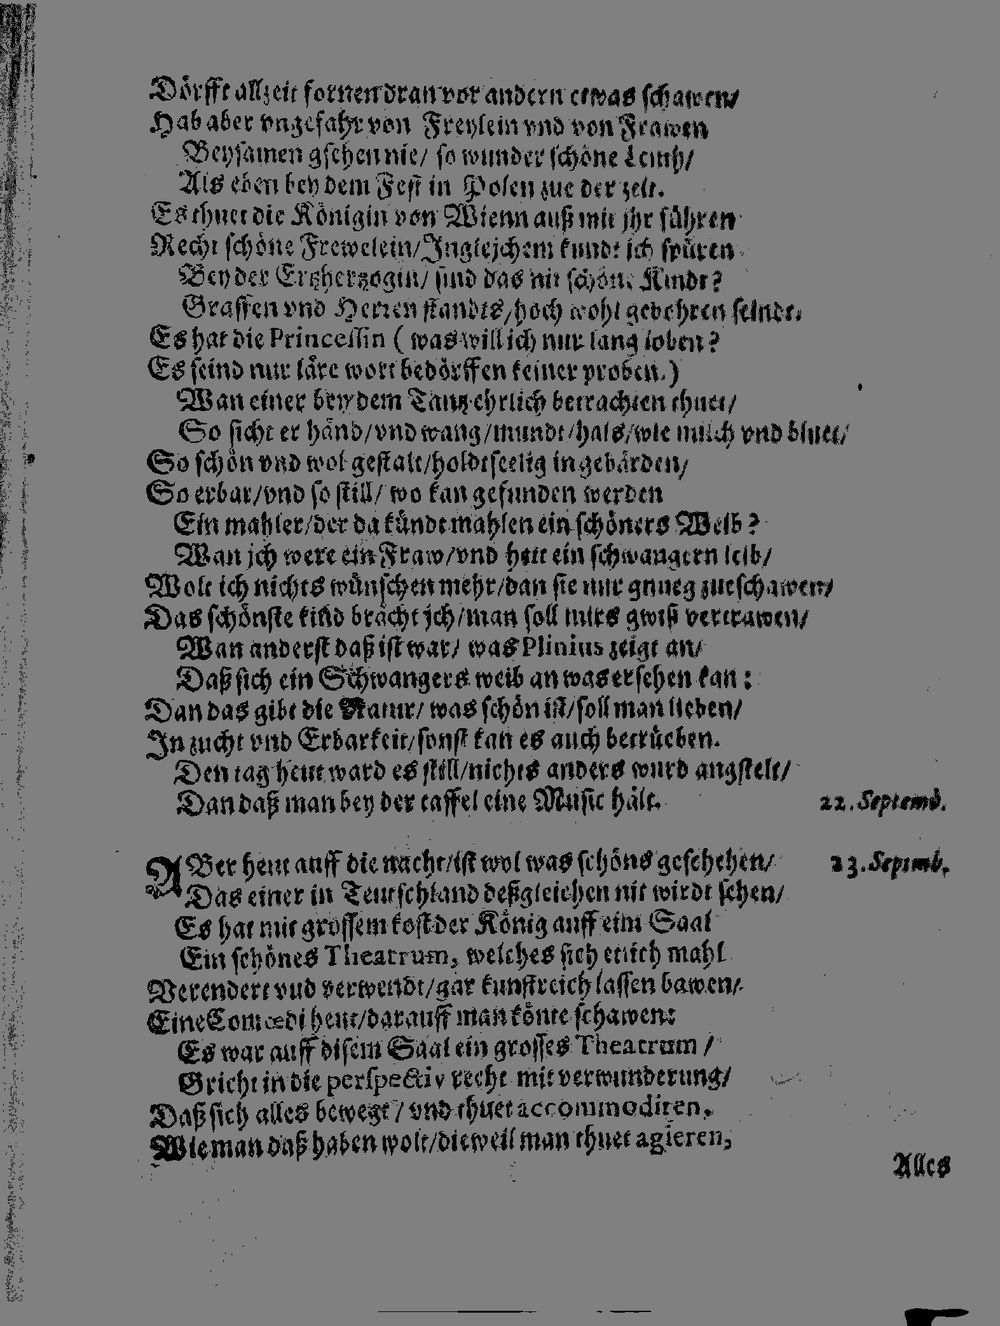 Dörfft allzeit fornen dran vor andern etwas schawen/
Hab aber vngefahr von Freylein vnd von Frawen
Beysamen gsehen nie/ so wunder schöne Leuth/
Als eben bey dem Fest in Polen zue der zeit.
Es thuet die Königin von Wienn auß mit jhr führen
Recht schöne Frewelein/Ingleichem kundt ich spüren
Bey der Ertzherzogin/ sind das nit schöne Kindt?
Graffen vnd Herren standts/hoch wohl gebohren seindt.
Es hat die Princessin ( was will ich nur lang loben?
Es seind nur läre wort bedörffen keiner proben.)
Wan einer bey dem Tantz ehrlich betrachten thuet/
So sicht er händ/vnd wang/mundt/hals/wie milch vnd bluet/
So schön vnd wol gestalt/holdtseelig in gebärden/
So erbar/vnd so still/ wo kan gefunden werden
Ein mahler/der da kündt mahlen ein schöners Weib?
Wan jch were ein Fraw/vnd hett ein schwangern leib/
Wolt ich nichts wünschen mehr/dan sie nur gnueg zueschawen/
Das schönste kind brächt jch/man soll mirs gwiß vertrawen/
Wan anderst daß ist war/ was Plinius zeigt an/
Daß sich ein Schwangers weib an was ersehen kan:
Dan das gibt die Natur/ was schön ist/soll man lieben/
In zucht vnd Erbarkeit/sonst kan es auch betrüeben.
Den tag heut ward es still/nichts anders wurd angstelt/
Dan daß man bey der taffel eine Music hält. 22. Septemb.
ABer heut auff die nacht/ist wol was schöns geschehen/ 23. Septemb.
Das einer in Teutschland deßgleichen nit wirdt sehen/
Es hat mit grossem kost der König auff eim Saal
Ein schönes Theatrum, welches sich etlich mahl
Verendert vnd verwendt/gar kunstreich lassen bawen/
Eine Comœdi heut/darauff man könte schawen:
Es war auff disem Saal ein grosses Theatrum /
Gricht in die perspectiv recht mit verwunderung/
Daß sich alles bewegt / vnd thuet accommodiren,
Wie man daß haben wolt/dieweil man thuet agieren,
Alles